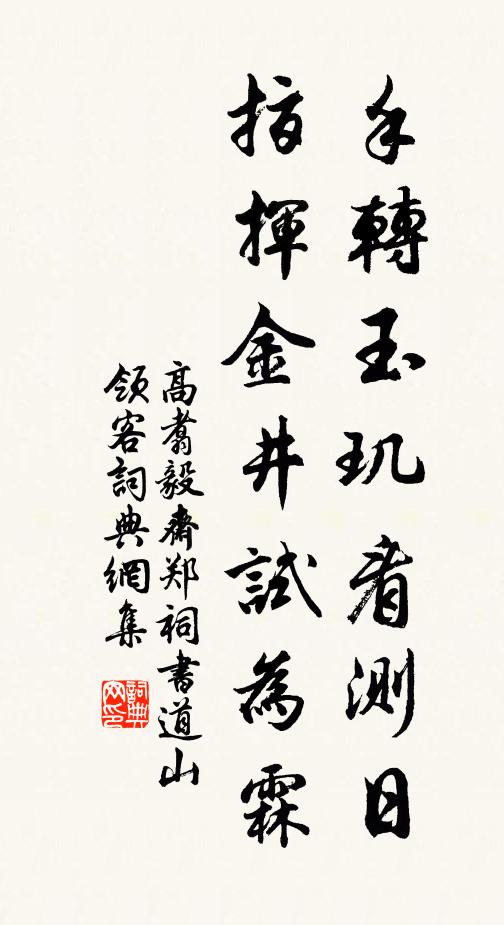 手轉玉璣看測日
指揮金井試為霖
高翥毅齋郑祠書道山
領客詞典網集
詞典網印